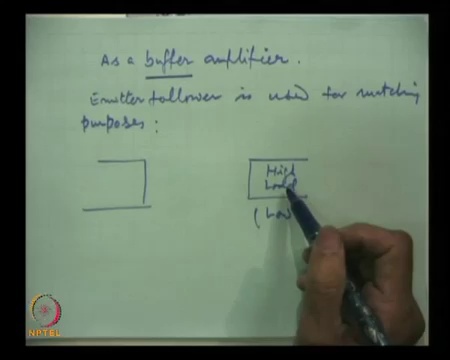 As a buffer amplifier.
Emitter follower is used for matching
purposes :
High
Load
(Low
NPTEL